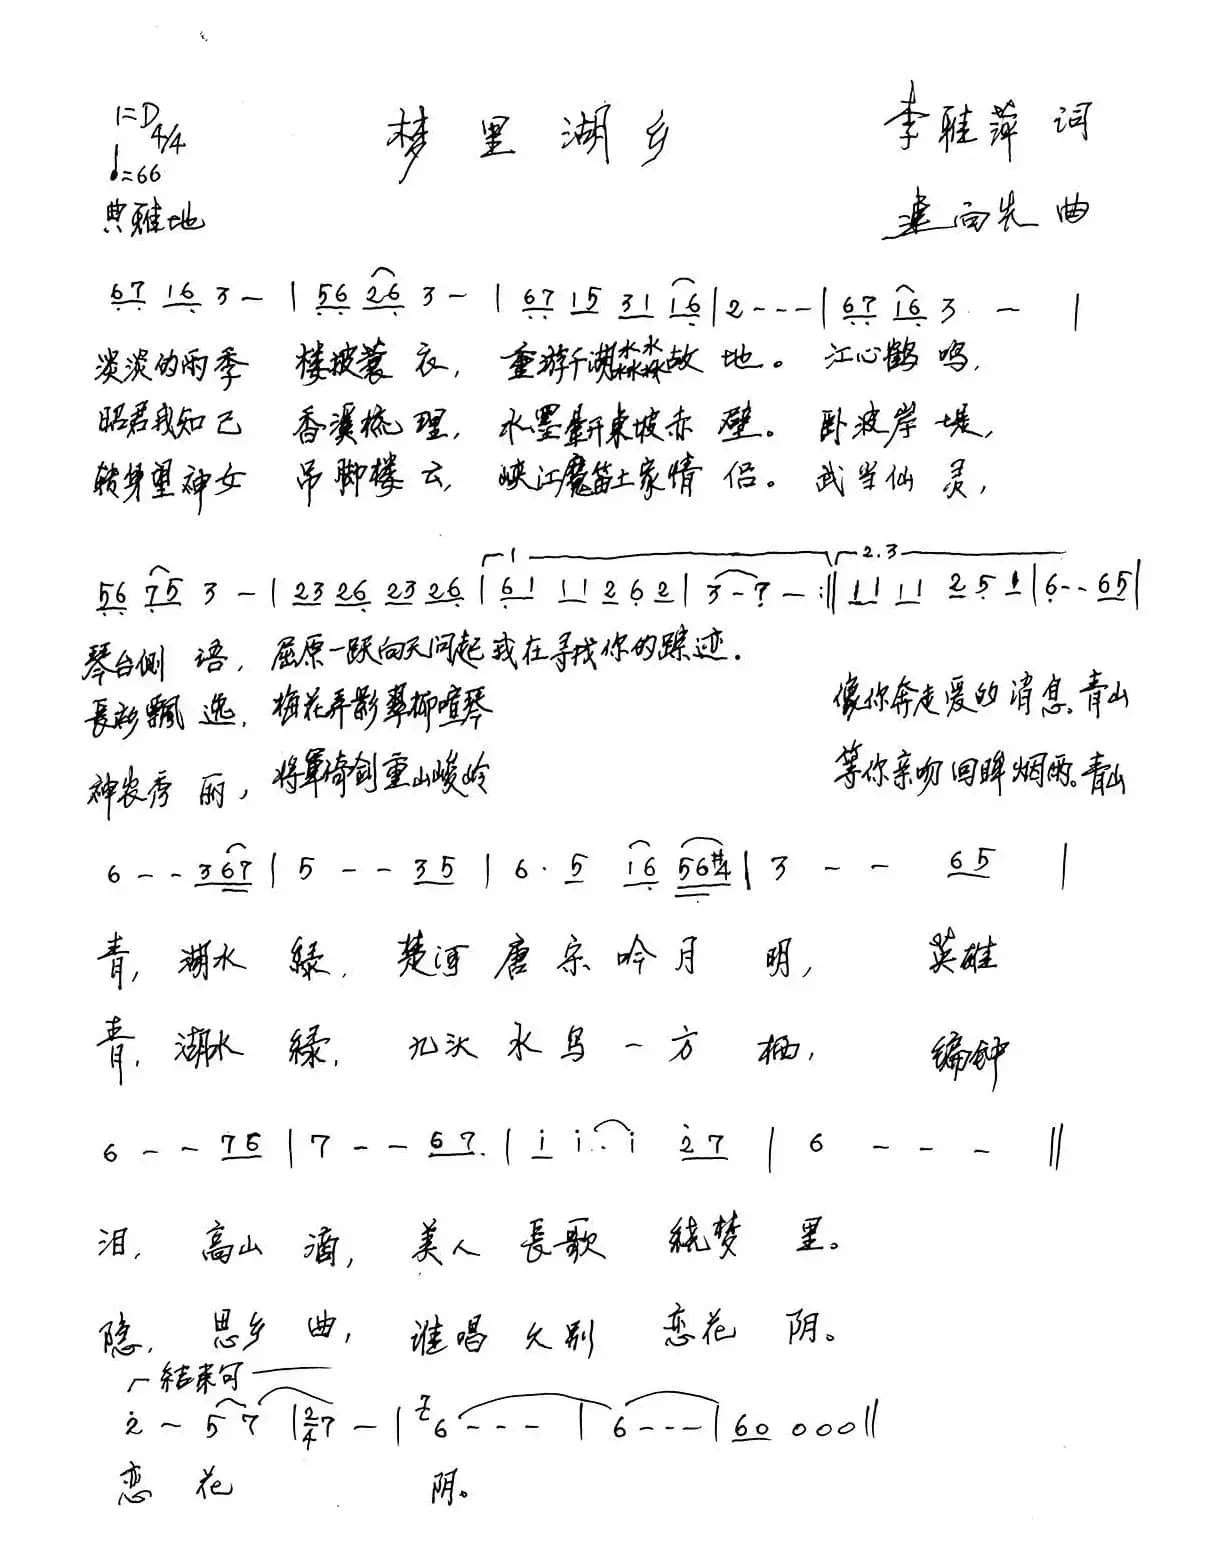 1=D 4/4
梦里湖乡
李雅萍 词
♩=66
典雅地
建向先 曲
67 16 3 - | 56 26 3 - | 67 15 31 16 | 2 - - - | 67 16 3 - |
淡淡的雨季 楼披蓑衣, 重游千湖淼淼故地。 江心鹤鸣,
昭君我知己 香溪梳理, 水墨晕开东坡赤壁。 卧波岸堤,
转身望神女 吊脚楼云, 峡江魔笛土家情侣。 武当仙灵,
1 2.3
56 75 3 - | 23 26 23 26 | 61 11 2 6 2 | 3 - 7 - :|| 11 11 2 5 1 | 6 - - 65 |
琴台侧语, 屈原一跃向天问起我在寻找你的踪迹.
長衫飄逸, 梅花弄影翠柳喧琴 像你奔走爱的消息。青山
神农秀丽, 将軍倚剑重山峻岭 等你亲吻回眸烟雨。青山
6 - - 3 67 | 5 - - 35 | 6 · 5 16 56#4 | 3 - - 65 |
青, 湖水 緑, 楚河唐宗吟月明, 英雄
青, 湖水 緑, 九头水鸟一方栖, 编钟
6 - - 76 | 7 - - 67 | i i · i 2 7 | 6 - - - ||
泪, 高山 酒, 美人長歌 绕梦里。
隐, 思乡曲, 谁唱久别 恋花阴。
結束句
2 - 5 7 | 2/4 7 - | 7 6 - - - | 6 - - - | 60 000 ||
恋花 阴。